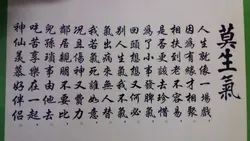 莫生氣
人生就像一場戲
因爲有緣才相聚
相扶到老不容易
是否更該去珍惜
爲了小事發脾氣
回頭想想又何必
別人生氣我不氣
氣出病來無人替
我若氣死誰如意
況且傷神又費力
鄰居親朋不要比
兒孫瑣事由他去
吃苦享樂在一起
神仙羨慕好伴侶